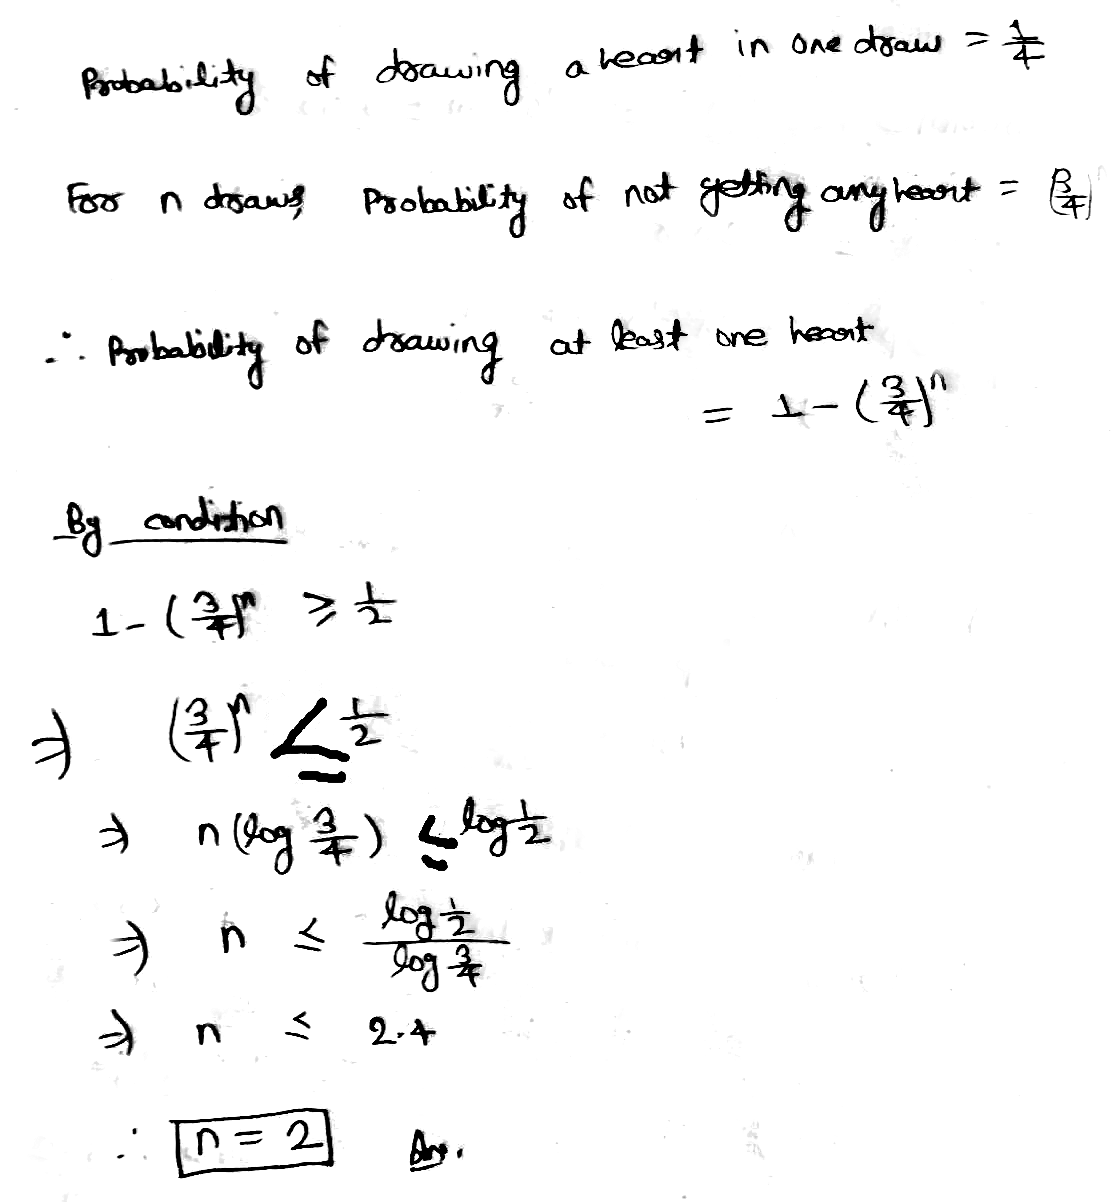 Probability of drawing a heart in one draw = 1/4
For n draws, Probability of not getting any heart = (3/4)
∴ Probability of drawing at least one heart
= 1 - (3/4)^n
By condition
1 - (3/4)^n ≥ 1/2
⇒ (3/4)^n ≤ 1/2
⇒ n (log 3/4) ≤ log 1/2
⇒ n ≤ (log 1/2)/(log 3/4)
⇒ n ≤ 2.4
∴ n = 2 Ans.